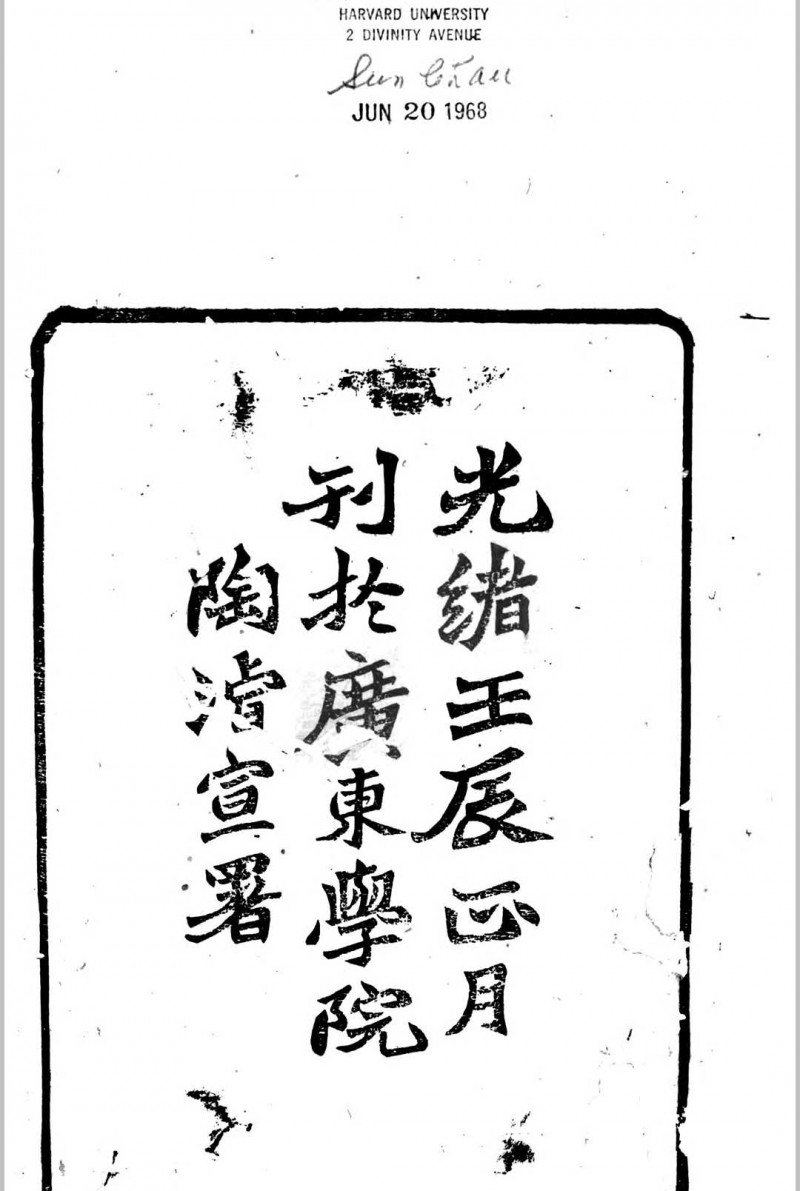 HARVARD UNIVERSITY
2 DIVINITY AVENUE
JUN 20 1968
光緒壬辰正月
刊於廣東學院
陶濬宣署